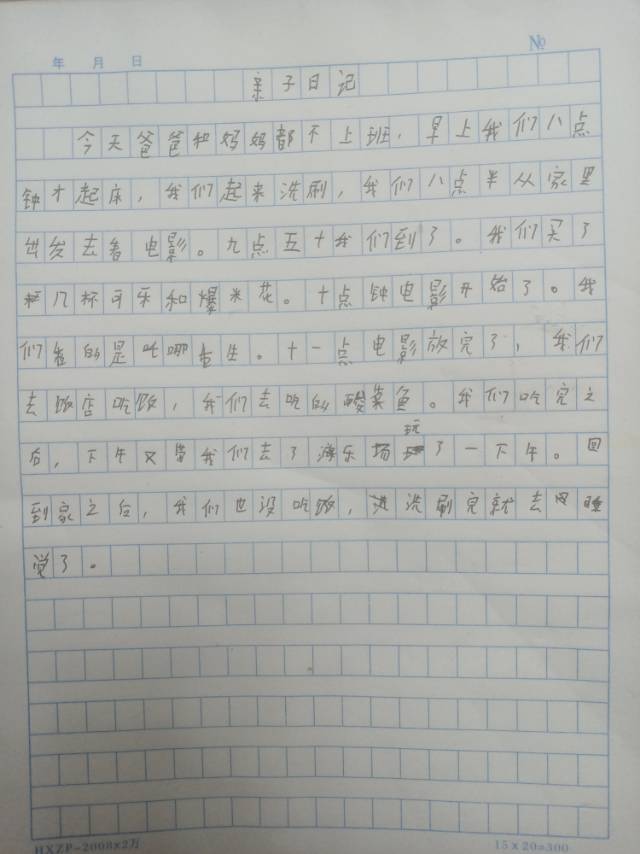 年 月 日 №
亲子日记
今天爸爸和妈妈都不上班，早上我们八点
钟才起床，我们起来洗刷，我们八点半从家里
出发去看电影。九点五十我们到了。我们买了
几杯可乐和爆米花。十点钟电影开始了。我
们看的是哪吒。十一点电影放完了，我们
去饭店吃饭，我们去吃的酸菜鱼。我们吃完之
后，下午又带我们去了游乐场玩了一下午。回
到家之后，我们也没吃饭，洗刷完就去睡
觉了。
HXZP-2008×2万 15×20=300